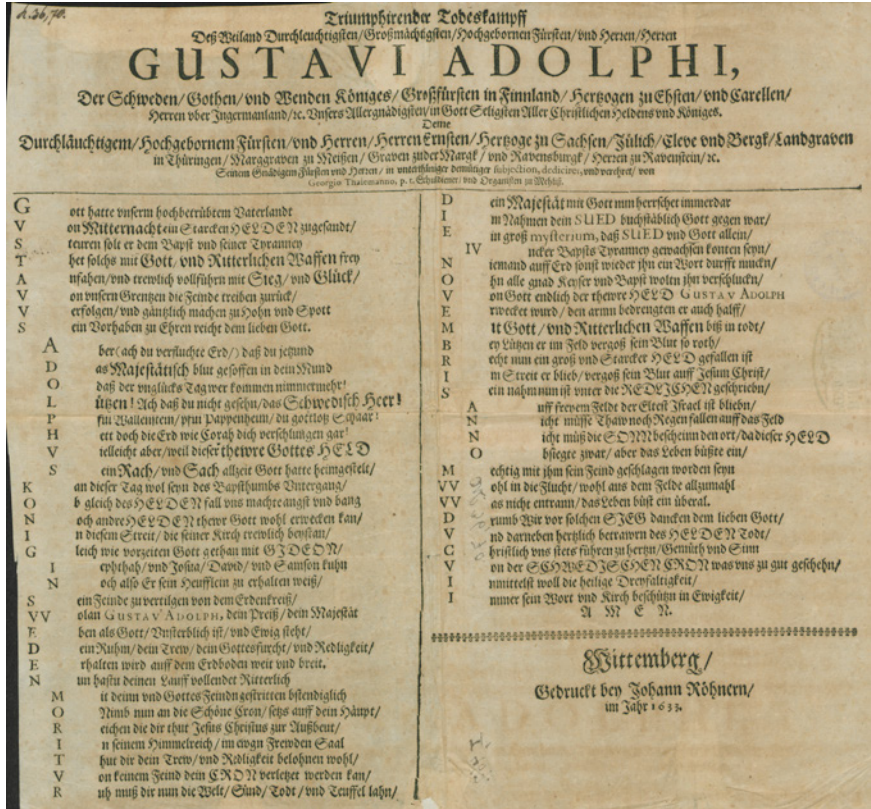 Triumphirender Todeskampff
Deß Weiland Durchleuchtigsten/ Großmächtigsten/ Hochgebornen Fürsten/ vnd Herren/ Herren
GUSTAVI ADOLPHI,
Der Schweden/ Gothen/ vnd Wenden Königes/ Großfürsten in Finnland/ Hertzogen zu Ehsten/ vnd Carellen/
Herren vber Ingermanland/ ꝛc. Vnsers Allergnädigsten/ in Gott Seligsten Aller Christlichen Heldens vnd Königes.
Deme
Durchläuchtigem/ Hochgebornem Fürsten/ vnd Herren/ Herren Ernsten/ Hertzoge zu Sachsen/ Jülich/ Cleve vnd Bergk/ Landgraven
in Thüringen/ Marggraven zu Meißen/ Graven zu der Margk/ vnd Ravensburgk/ Herzen zu Ravenstein/ ꝛc.
Seinem Gnädigem Fürsten vnd Herren/ in unterthäniger demütiger subjection, dediciret, vnd verehret/ von
Georgio Thalemanno, p. t. Schuldiener/ vnd Organisten zu
G ott hatte vnserm hochbetrübtem Vaterlandt
V on Mitternacht ein Starcken HELDEN zugesandt/
S teuren solt er dem Bapst vnd seiner Tyranney
T het solchs mit Gott/ vnd Ritterlichen Waffen frey
A nfahen/ vnd trewlich vollführn mit Sieg/ vnd Glück/
V on vnsern Grentzen die Feinde treiben zurück/
V erfolgen/ vnd gäntzlich machen zu Hohn vnd Spott
S ein Vorhaben zu Ehren reicht dem lieben Gott.
A ber (ach du verfluchte Erd/) daß du jetzund
D as Majestätisch blut gesoffen in dein Mund
O daß der vnglücks Tag wer kommen nimmermehr!
L ützen! Ach daß du nicht gesehn/ das Schwedisch Heer!
P fui Wallenstein/ pfui Pappenheim/ du gottloß Schaar!
H ett doch die Erd wie Corah dich verschlungen gar!
V ielleicht aber/ weil dieser thewre Gottes HELD
S ein Rach/ vnd Sach allzeit Gott hatte heimgestelt/
K an dieser Tag wol seyn des Bapsthumbs Vntergang/
O b gleich des HELDEN fall vns machte angst vnd bang
N och andre HELDEN thewr Gott wohl erwecken kan/
I n diesem Streit/ die seiner Kirch trewlich beystan/
G leich wie vorzeiten Gott gethan mit GIDEON/
I ephthah/ vnd Josua/ David/ vnd Samson kuhn
N och also Er sein Heufflein zu erhalten weiß/
S ein Feinde zu vertilgen von dem Erdenkreiß/
VV olan GUSTAV ADOLPH, dein Preiß/ dein Majestät
E ben als Gott/ Vnsterblich ist/ vnd Ewig steht/
D ein Ruhm/ dein Trew/ dein Gottesfurcht/ vnd Redligkeit/
E rhalten wird auff dem Erdboden weit vnd breit.
N un hastu deinen Lauff vollendet Ritterlich
M it deinn vnd Gottes Feindn gestritten bstendiglich
O Nimb nun an die Schöne Cron/ setzs auff dein Häupt/
R eichen die dir thut Jesus Christus zur Außbeut/
I n seinem Himmelreich/ im ewgn Frewden Saal
T hut dir dein Trew/ vnd Redligkeit belohnen wohl/
V on keinem Feind dein CRON verletzet werden kan/
R uh muß dir nun die Welt/ Sünd/ Todt/ vnd Teuffel lahn/
D ein Majestät mit Gott nun herrschet immerdar
I m Nahmen dein SUED buchstäblich Gott gegen war/
E in groß mysterium, daß SUED vnd Gott allein/
IV ncker Bapsts Tyranney gewachsen konten seyn/
N iemand auff Erd sonst wieder jhn ein Wort durfft muckn/
O hn alle gnad Keyser vnd Bapst woltn jhn verschluckn/
V on Gott endlich der thewre HELD GUSTAV ADOLPH
E rwecket wurd/ den armn bedrengten er auch halff/
M it Gott/ vnd Ritterlichen Waffen biß in todt/
B ey Lützen er im Feld vergoß sein Blut so roth/
R echt nun ein groß vnd Starcker HELD gefallen ist
I m Streit er blieb/ vergoß sein Blut auff Jesum Christ/
S ein nahm nun ist vnter die REDLICHEN geschriebn/
A uff freyem Feldt der Eltest Israel ist bliebn/
N icht müsse Thaw noch Regen fallen auff das Feld
N icht müß die SONN bescheinn den ort/ da dieser HELD
O bsiegte zwar/ aber das Leben büßte ein/
M echtig mit jhm sein Feind geschlagen worden seyn
VV ohl in die Flucht/ wohl aus dem Felde allzumahl
VV as nicht entrann/ das Leben büst ein überal.
D rumb Wir vor solchen SIEG dancken dem lieben Gott/
V nd darneben hertzlich betrawrn des HELDEN Todt/
C hristlich vns stets führen zu hertzn/ Gemüth vnd Sinn
V on der SCHWEDISCHEN CRON was vns zu gut geschehn/
I nmittelst woll die heilige Dreyfaltigkeit/
I mmer sein Wort vnd Kirch beschützn in Ewigkeit/
A M E N.
Wittemberg/
Gedruckt bey Johann Röhnern/
im Jahr 1633.